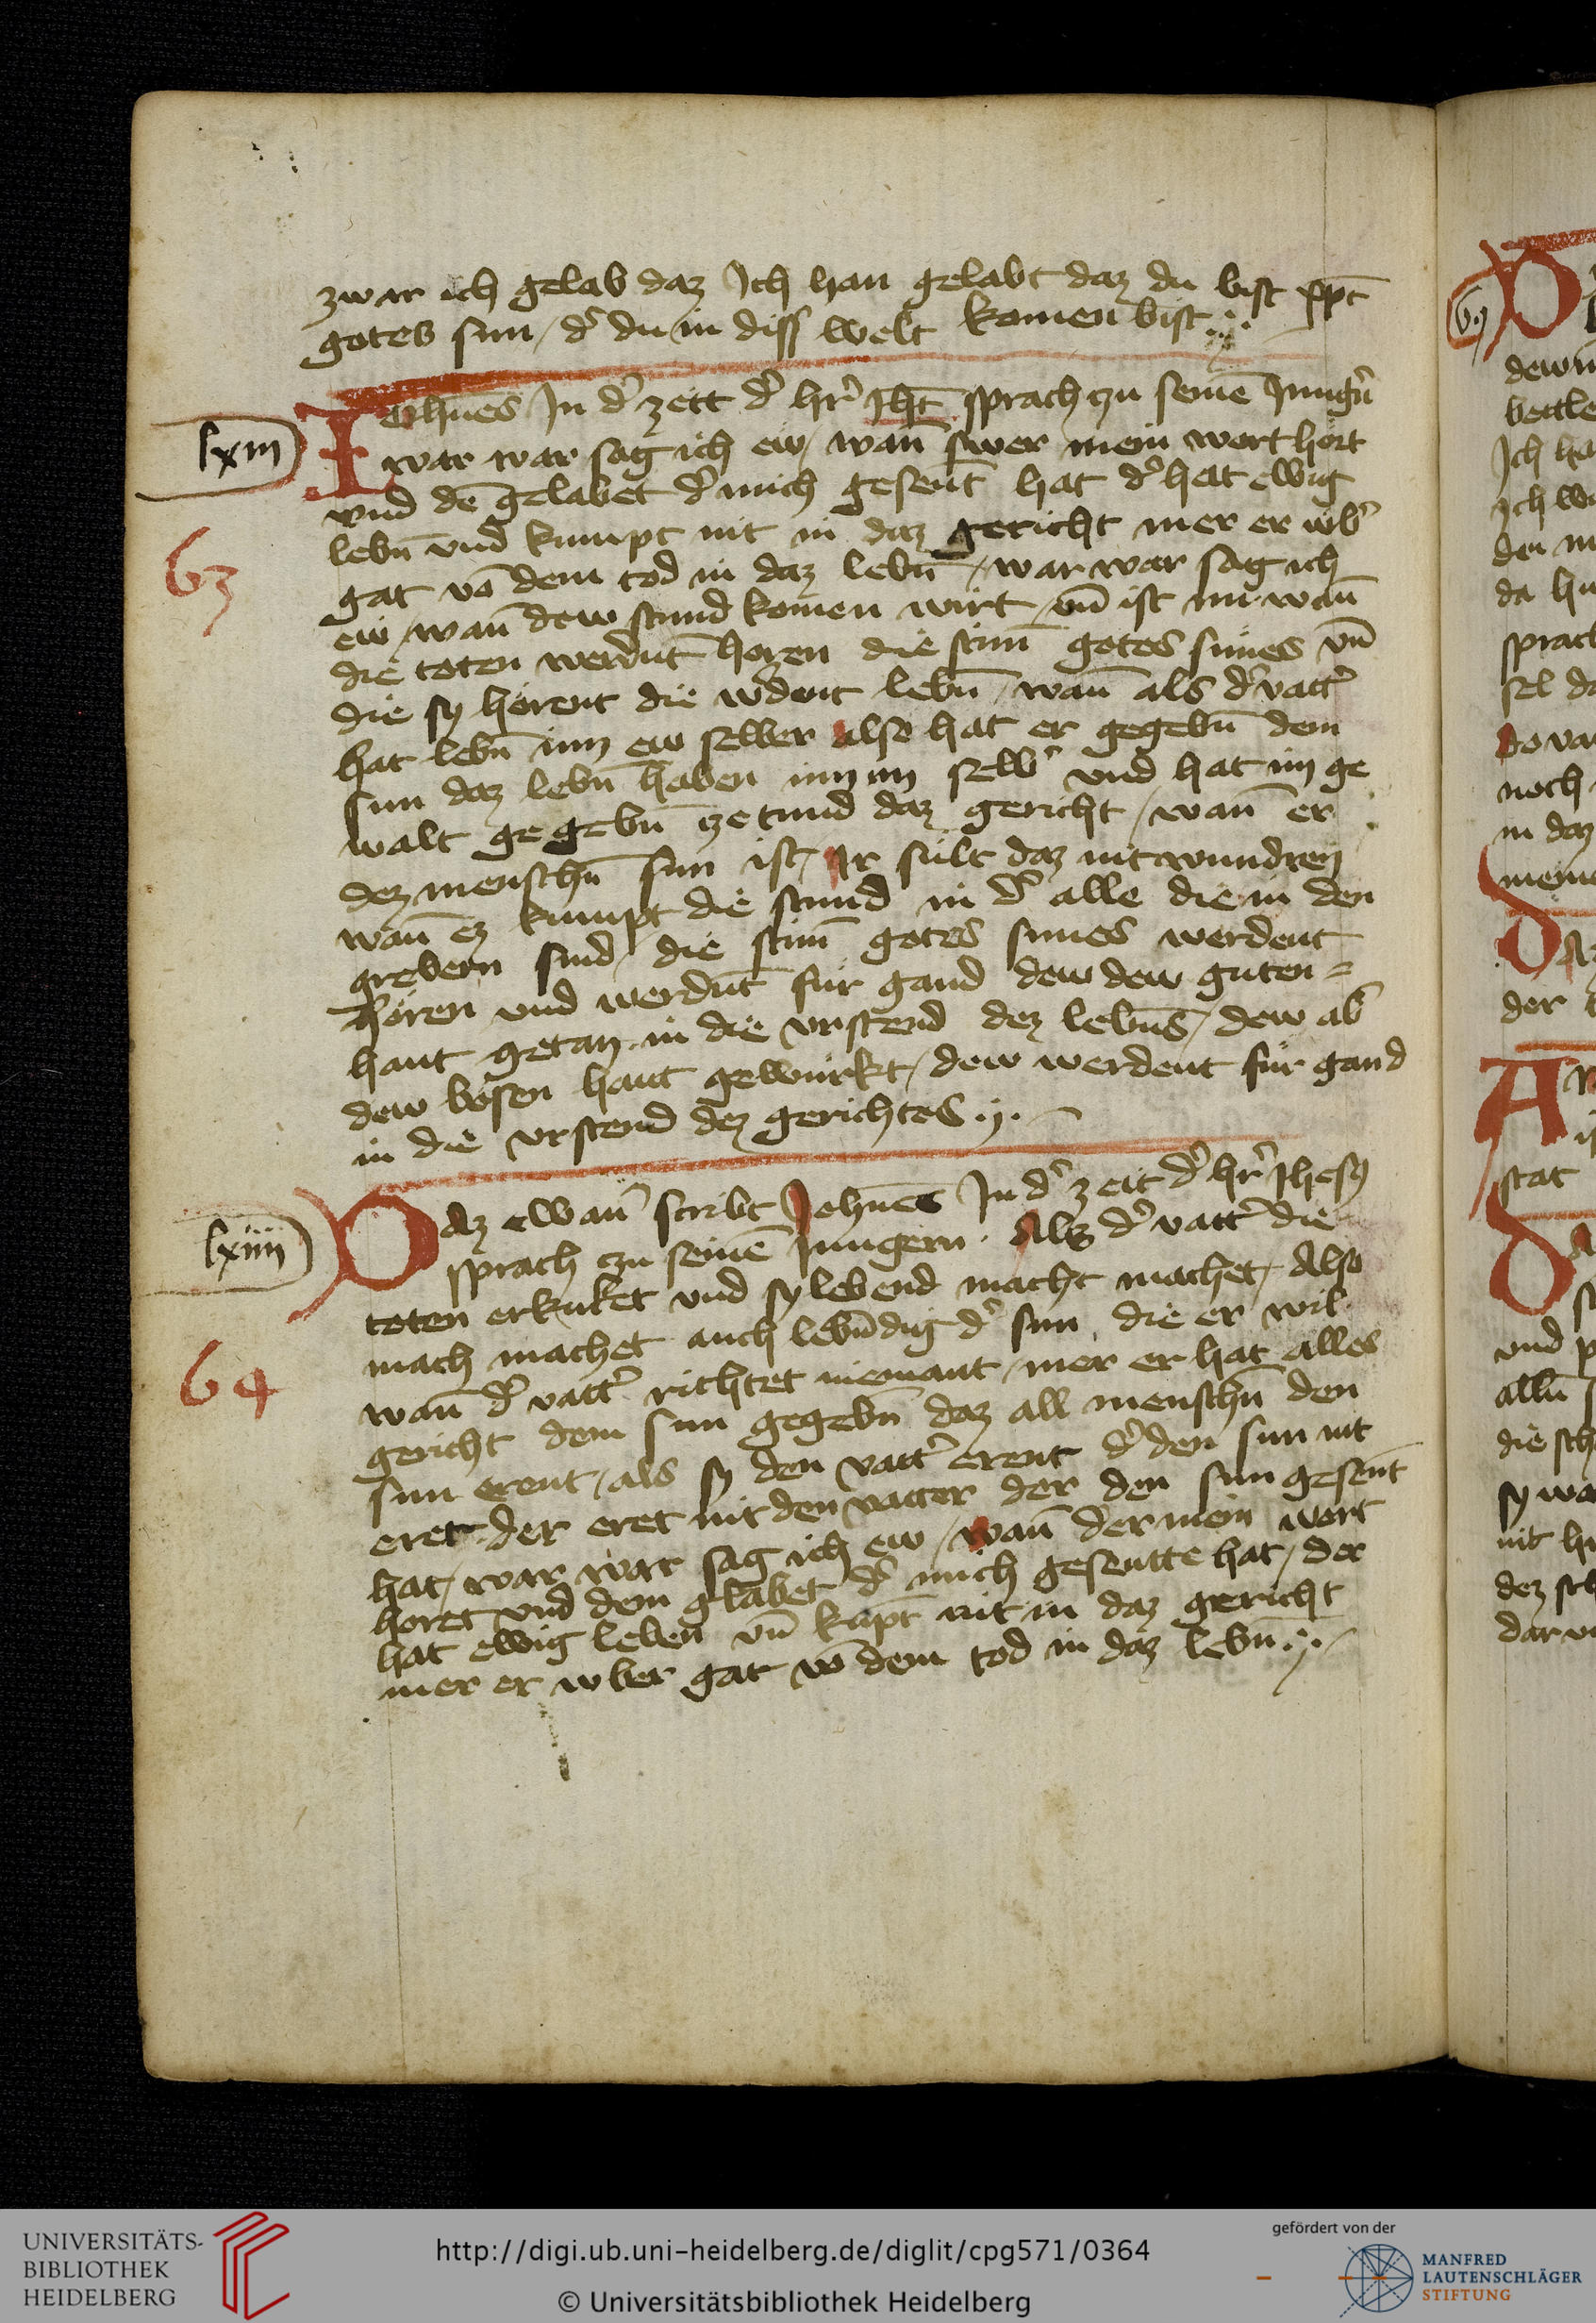 zwar ich gelab daz Ich han gelabt daz du bist xp̄c
gotes sun / d͛ du in diss welt komen bist :·
lxiii
Iohn̄es In d͛ zeit d͛ hr͛ Ih̄c sprach czu seinē Jung͛n
war war sag ich ew / wan̄ swer mein wort hört
vnd dē gelabet d͛ mich gesent̄ hat d͛ hat ewig
63
lebn̄ vnd kumpt nit in daz gericht mer er üb͛
gat võ dem tod in daz lebn̄ / war war sag ich
ew / wan̄ dew stund komen wirt / vn̄ ist nu wan̄
die toten werdnt̄ horen die stim̄ gotes sunes vn̄
die sy hörent die wͤdent lebn̄ / wan̄ als d͛ vatt͛
hat lebn̄ inn ew selber also hat er gegebn̄ dem
sun daz lebn̄ haben inn im selb͛ vnd hat im ge
walt gegebn̄ ze tund daz gericht / wan̄ er
dez menschn̄ sun ist / Ir sült daz nit wundren
wan̄ ez kumpt die stund in d͛ alle die in den
grebern sind / die stim̄ gotes sunes werdent
hören vnd werdnt̄ für gand dew dew guten =
hant getan in die vrstend dez lebn̄s / dew ab͛
dew bösen hant gewürkt / dew werdent für gand
in die vrstend dez gerichtes ·:·
lxiiii
Daz ewan̄ scribt John̄es In d͛ zeit d͛ hr͛ Ihesus
sprach czu seinē Jungern · Als d͛ vatt͛ die
toten erkuket vnd sy lebend macht machet / Also
64
mach machet auch lebn̄dig d͛ sun die er wil
wan̄ d͛ vatt͛ richtet niemant / mer er hat alles
gericht dem sun gegebn̄ daz all menschn̄ den
sun erent / als sy den vatt͛ erent d͛ den sun nit
eret der eret nit den vatter der den sun gesent̄
hat / war war sag ich ew / wan̄ der mein wort
horet vnd dem glabet d͛ mich gesentte hat / der
hat ewig leben vn̄ kūpt nit in daz gericht
mer er uber gat vō dem tod in daz lebn̄ ·:·
UNIVERSITÄTS-
BIBLIOTHEK
HEIDELBERG
http://digi.ub.uni-heidelberg.de/diglit/cpg571/0364
© Universitätsbibliothek Heidelberg
gefördert von der
MANFRED
LAUTENSCHLÄGER
STIFTUNG